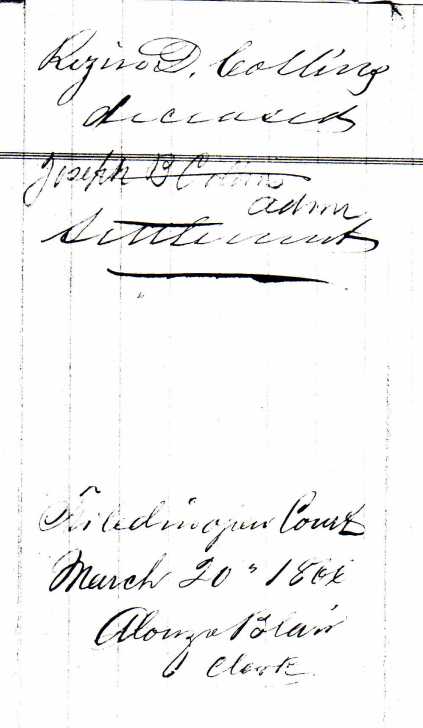 Rezin D. Collins
deceased
Joseph B Collins
admr
Settlement
Filed in open Court
March 20"
Alonzo Blair
Clerk